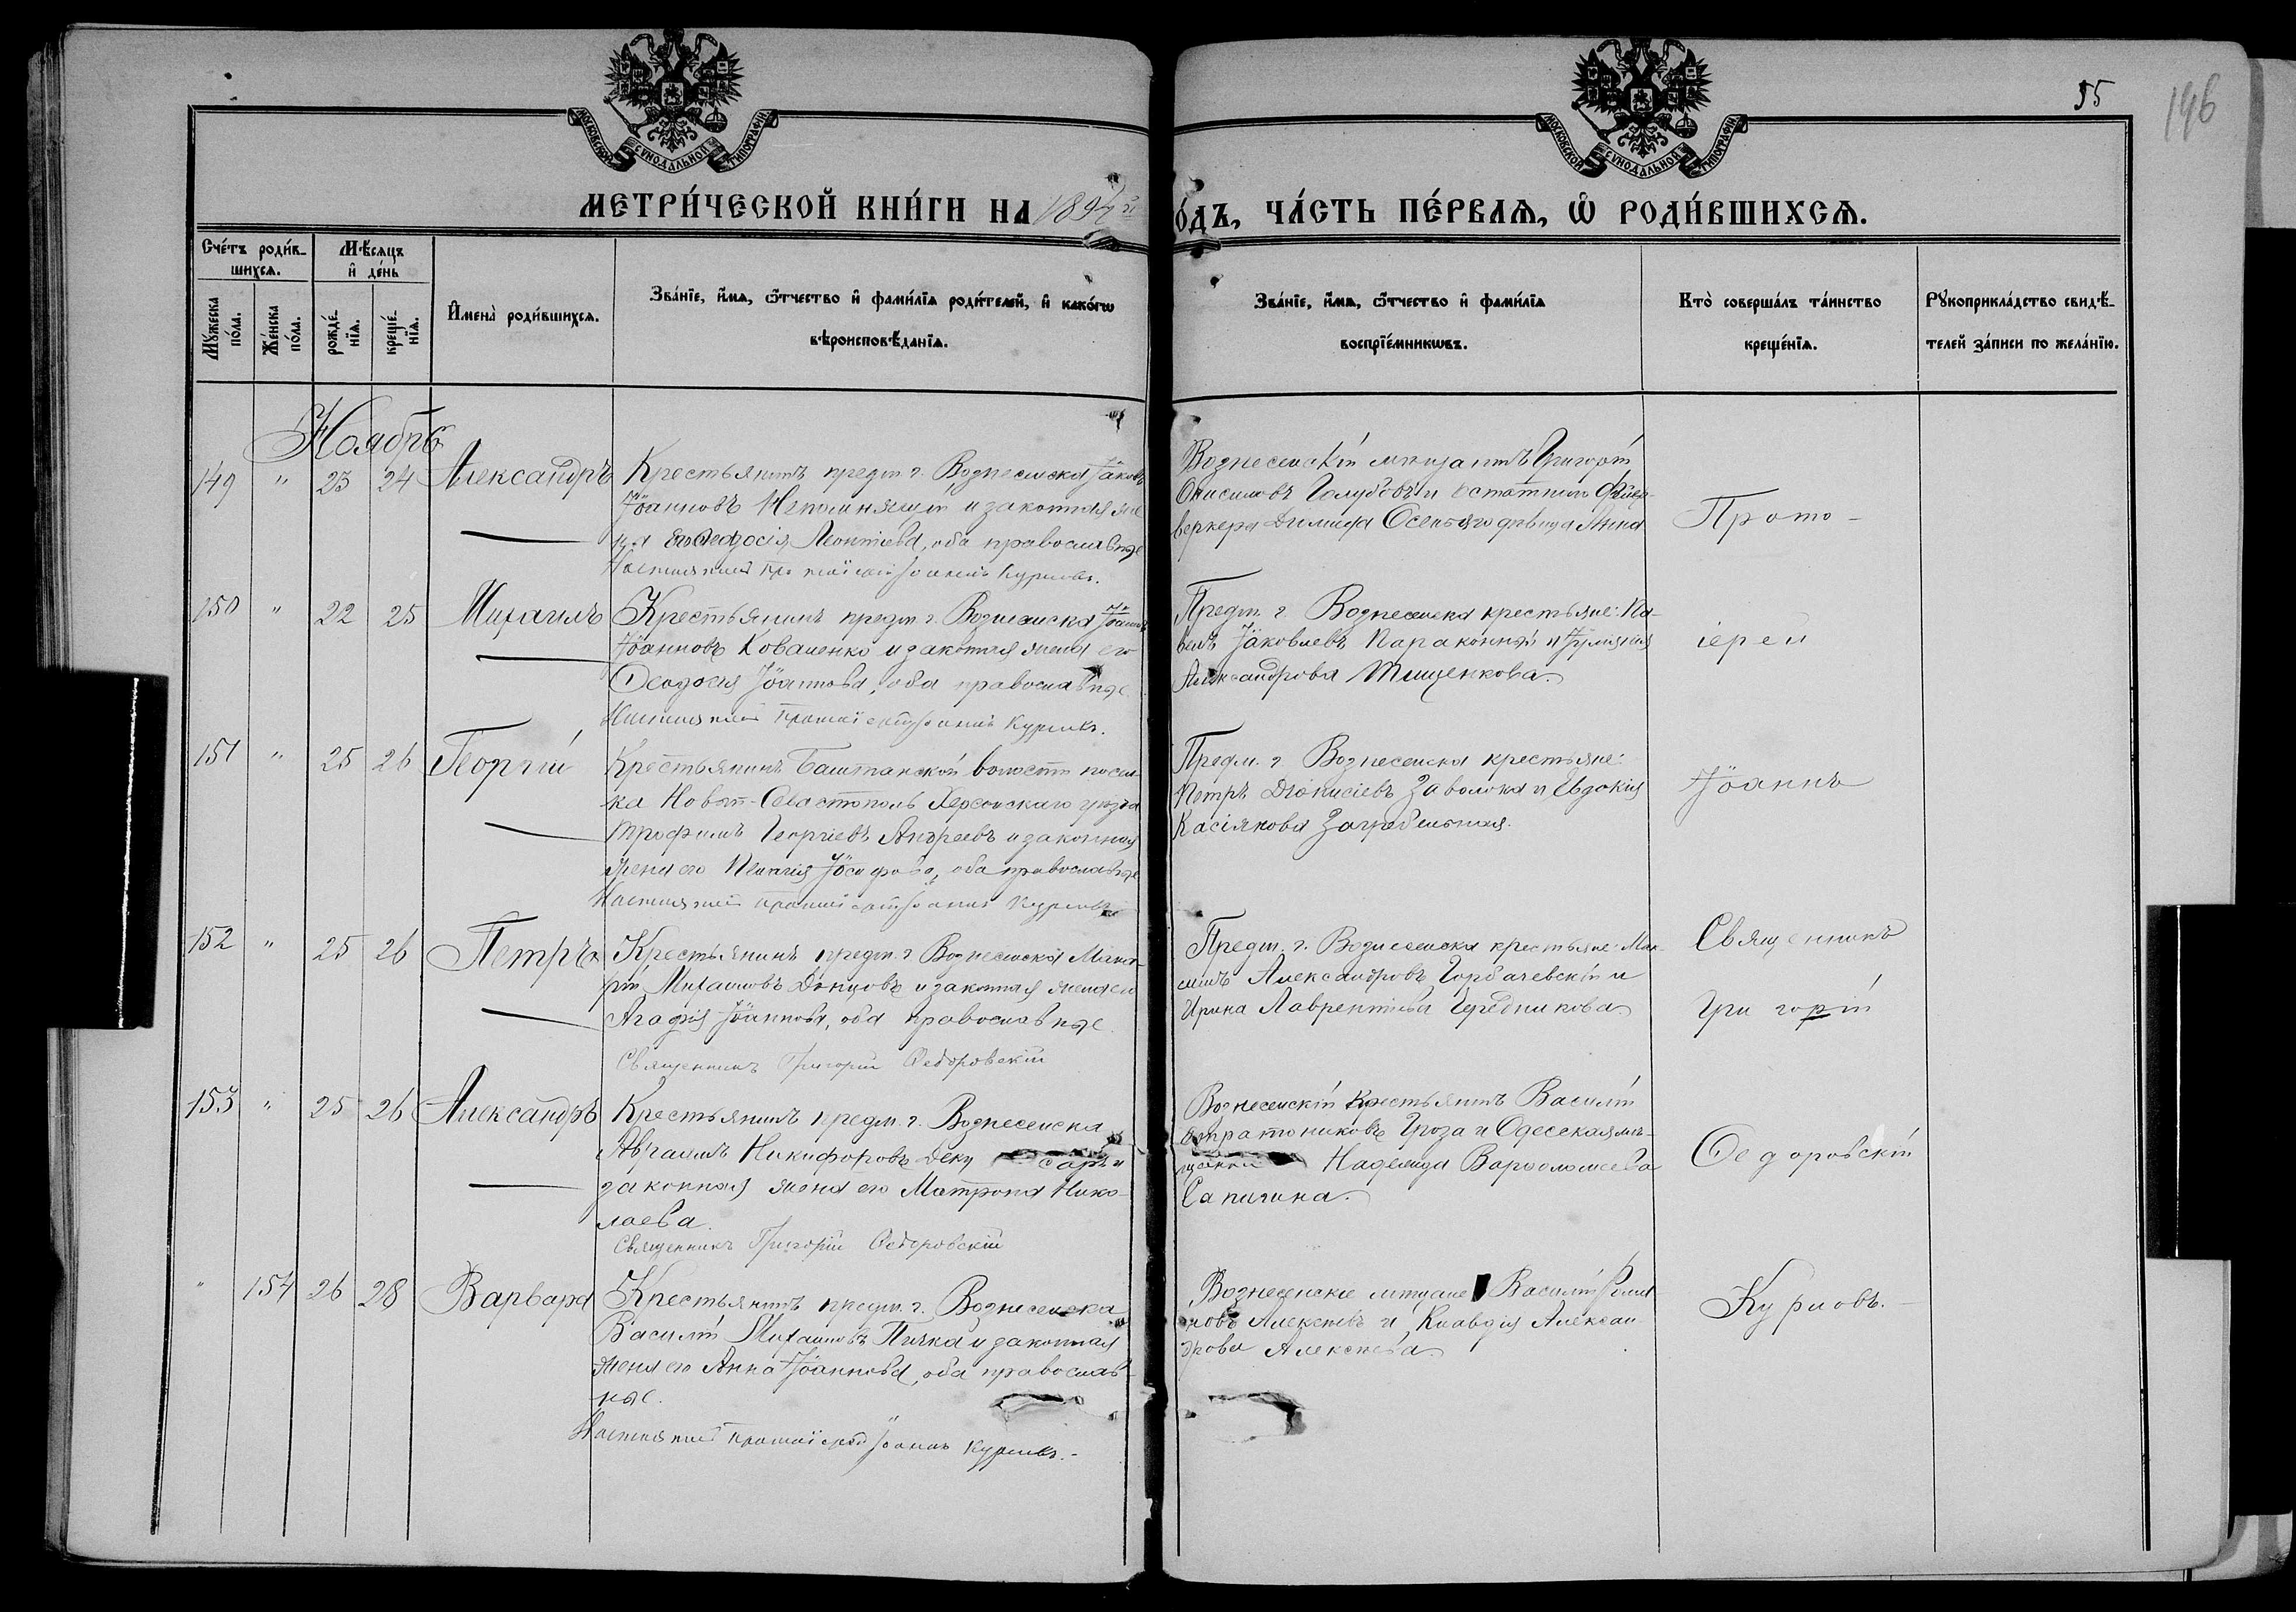 МОСКОВСКОЙ СѴНОДАЛЬНОЙ ТИПОГРАФІИ
МОСКОВСКОЙ СѴНОДАЛЬНОЙ ТИПОГРАФІИ
55
146
МЕТРИ́ЧЕСКОЙ КНИ́ГИ НА 189
о́дъ, ЧА́СТЬ ПЕ́РВАѦ, Ѡ҆ РОДИ́ВШИХСѦ.
Сче́тъ роди́в-
шихсѧ.
Мѣ́сѧцъ
и҆ де́нь
Мꙋ́жеска
по́ла.
Же́нска
по́ла.
рожде́-
нїѧ.
креще́-
нїѧ.
И҆мена̀ роди́вшихсѧ.
Зва́нїе, и҆́мѧ, ѻ҆́тчество и҆ фами́лїѧ роди́телей, и҆ како́гѡ
вѣроисповѣ́данїѧ.
Зва́нїе, и҆́мѧ, ѻ҆́тчество и҆ фами́лїѧ
воспрїе́мникѡвъ.
Кто̀ соверша́лъ та́инство
креще́нїѧ.
Рꙋкоприкла́дство свидѣ́-
телей за́писи по жела́нїю.
Ноябрь
149 " 23 24 Александръ
Крестьянинъ предм. г. Вознесенска Іаковъ
Іоанновъ Непомнящій и законная же
на его Ѳеодосія Леонтіева, оба православные
Настоятель Протоіерей Іоаннъ Курловъ.
Вознесенскій мѣщанинъ Григорій
Онисимовъ Голубовъ и
веркера дѣвица Анна
Прото-
150 " 22 25 Михаилъ
Крестьянинъ предм. г. Вознесенска Іоаннъ
Іоанновъ Коваленко и законная жена его
Ѳеодосія Іоаннова, оба православные
Настоятель Протоіерей Іоаннъ Курловъ.
Предм. г. Вознесенска крестьяне: Па-
велъ Іаковлевъ Параконный и Іуліянія
Александрова Тищенкова.
іерей
151 " 25 26 Георгій
Крестьянинъ Баштанской волости посел-
ка Новый-Севастополь Херсонскаго уѣзда
Трофимъ Георгіевъ Андреевъ и законная
жена его Пелагія Іосифова, оба православные
Настоятель Протоіерей Іоаннъ Курловъ
Предм. г. Вознесенска крестьяне:
Петръ Діонисіевъ Заволока и Евдокія
Касіянова Загребельная.
Іоаннъ
152 " 25 26 Петръ
Крестьянинъ предм. г. Вознесенска Мака-
рій Михаиловъ Донцовъ и законная жена его
Агафія Іоаннова, оба православные
Священникъ Григорій Ѳедоровскій
Предм. г. Вознесенска крестьяне: Мак-
симъ Александровъ Горбачевскій и
Ирина Лаврентіева Чередникова
Священникъ
Григорій
153 " 25 26 Александръ
Крестьянинъ предм. г. Вознесенска
Авраамъ Никифоровъ и
законная жена его Матрона Нико-
лаева.
Священникъ Григорій Ѳедоровскій
Вознесенскій крестьянинъ Василій
Стратониковъ Гроза и Одесская мѣ-
щанка Надежда Варѳоломеева
Сапигина.
Ѳедоровскій
" 154 26 28 Варвара
Крестьянинъ предм. г. Вознесенска
Василій Михаиловъ Пичка и законная
жена его Анна Іоаннова, оба православ-
ные.
Настоятель Протоіерей Іоаннъ Курловъ.-
Вознесенскіе мѣщане Василій Рома
новъ Алексѣевъ и Клавдія Алексан
дрова Алексѣева.
Курловъ.-